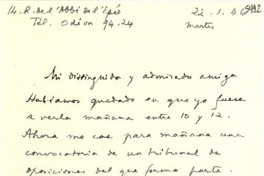 14. R. de l'Abbé de l'Epée
Tél. Odéon 94.24
22.1.46
martes
Mi distinguida y admirada amiga
Habíamos quedado en que yo fuese
a verla mañana entre 10 y 12.
Ahora me cae para mañana una
convocatoria de un tribunal de
oposiciones del que forma parte.